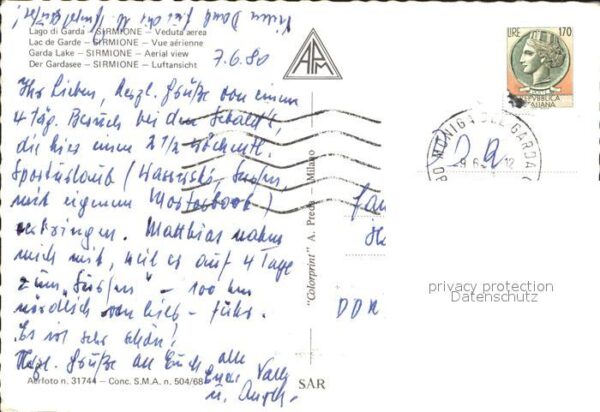 Vielen Dank für die
Lago di Garda – SIRMIONE – Veduta aerea
Lac de Garde – SIRMIONE – Vue aérienne
Garda Lake – SIRMIONE – Aerial view
Der Gardasee – SIRMIONE – Luftansicht
7.6.80
APM
Ihr Lieben, herzl. Grüße von einem
4 täg. Besuch bei den
die hier einen 2 1/2 wöchentl.
Sporturlaub (Wasserski, Surfen,
mit eigenem Motorboot)
verbringen. Matthias nahm
mich mit, weil er auf 4 Tage
zum "Surfen" – 100 km
nördlich von hier – fuhr.
Es ist sehr schön!
Herzl. Grüße an Euch alle
Eure
u.
Aerfoto n. 31744 – Conc. S.M.A. n. 504/68
SAR
"Colorprint" A. Preda – Milano
LIRE 170
REPUBBLICA
ITALIANA
MONIGA DEL GARDA
12
DDR
privacy protection
Datenschutz